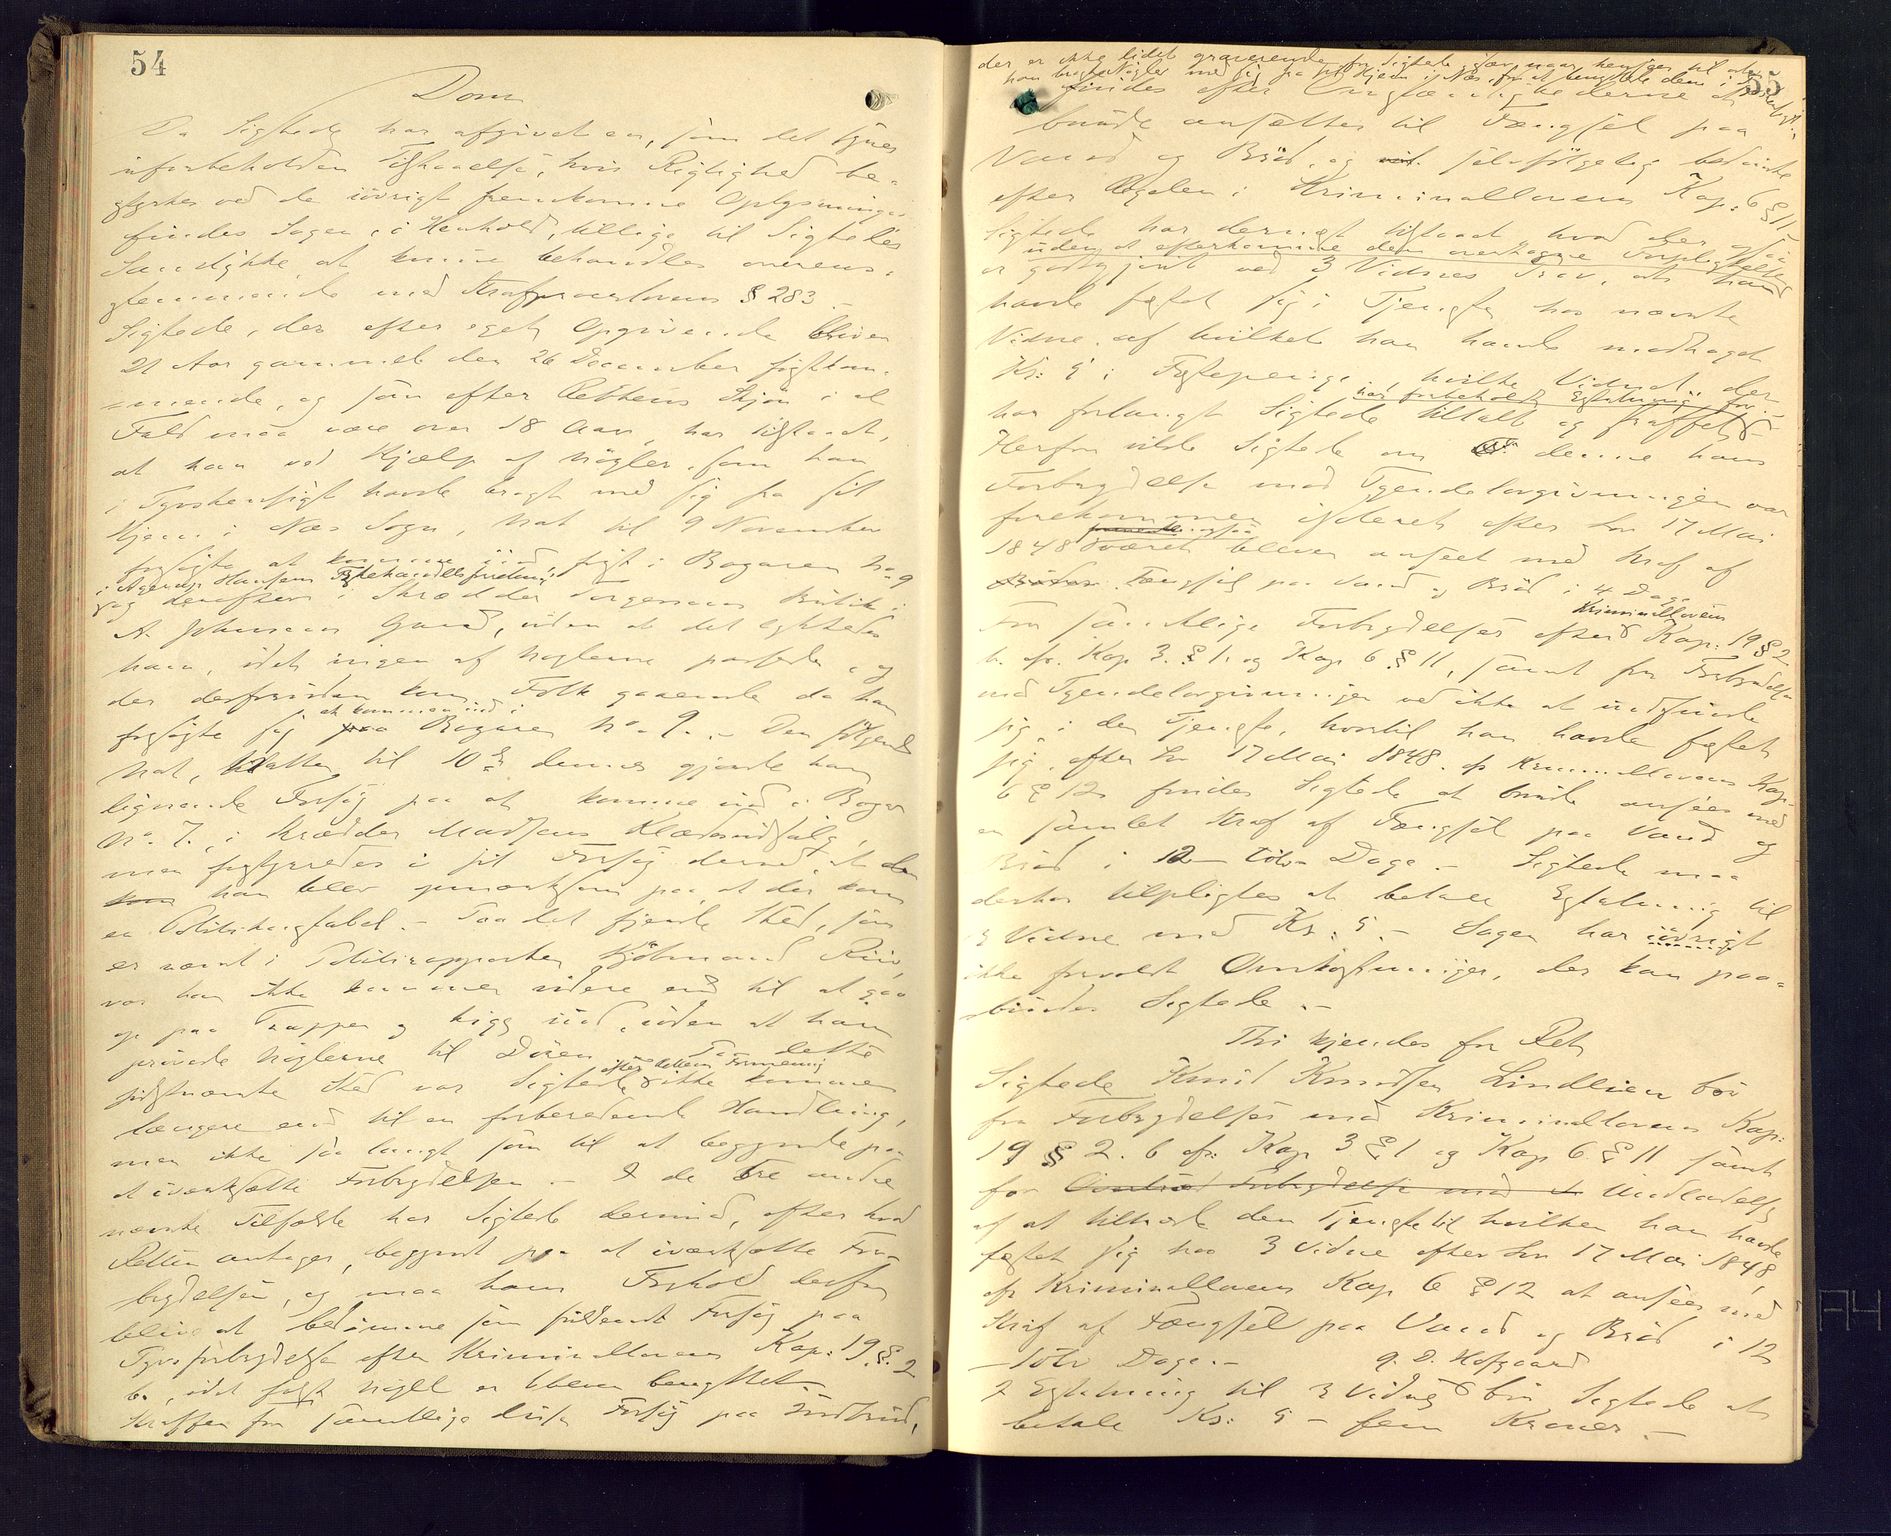 54
Dom
Da Sigtede har afgivet en, som det synes
uforbeholden Tilstaaelse, hvis Rigtighed be-
styrkes ved de iövrigt fremkomne Oplysninger
findes Sagen, i Henhold tillige til Sigtedes
Samtykke, at kunne behandles overens-
stemmende med Strafproceslovens § 283 –
Sigtede, der efter eget Opgivende bliver
21 Aar gammel den 26 December förstkom-
mende, og som efter Rettens Skjön i al
Fald maa være over 18 Aar, har tilstaaet,
at han ved Hjælp af Nögler, som han
i Tyvshensigt havde bragt med sig fra sit
Hjem i Næs Sogn, Nat til 9 November
forsögte at komme ind först i Bogaren No 9
i Agerup Hansens
og derefter i Skrædder Torgersens Butik i
A. Johnsens Gaard, uden at det lykkedes
ham, idet ingen af Nöglerne passede, og
der desforuden kom Folk gaaende da han
at komme ind i
forsögte sig paa Bogaren No 9. – Den fölgende
Nat, Natten til 10de dennes gjorde han
lignende Forsög paa at komme ind i Bogar
No 7, i Skrædder Madsens Klædeudsalg,
men forstyrredes i sit Forsög derved, at den
kom han blev opmærksom paa, at der kom
en Politikonstabel. – Paa det fjerde Sted, som
er nævnt i Politirapporten Kjöbmand Riis,
var han ikke kommen videre end til at gaa
op paa Trappen og kige ind, uden at han
prövede Nöglerne til Dören. Paa dette
efter Rettens Formening
sidstnævnte Sted var Sigtede ikke kommen
længere end til en forberedende Handling,
men ikke saa langt som til at begynde paa
at iværksætte Forbrydelsen. – I de tre andre
nævnte Tilfælde har Sigtede derimod, efter hvad
Retten antager, begyndt paa at iværksætte For-
brydelsen, og maa hans Forhold derfor
blive at bedömme som fuldendt Forsög paa
Tyvsforbrydelse efter Kriminallovens Kap: 19 §. 2
b., idet falsk Nögle er bleven benyttet.
Straffen for samtlige disse Forsög paa Indbrud,
55
der er ikke lidet graverende for Sigtede, især naar henses til at
han bragte Nögler med sig fra sit Hjem i Næs for at benytte dem i
findes efter Omstændighederne at
burde ansættes til Fængsel paa
Vand og Bröd, og selvfölgelig bedömte
efter Regelen i Kriminallovens Kap: 6 § 11
Sigtede har dernæst tilstaaet hvad der ogsaa
uden at efterkomme den overtagne Forpligtelse
er godtgjort ved 3 Vidnes Prov, at han
havde fæstet sig i Tjeneste hos nævnte
Vidne, af hvilket han havde modtaget
Kr: 5 i Fæstepenge, hvilket Vidne der-
har forbeholdt Erstatning for
har forlangt Sigtede tiltalt og straffet.
Herfor vilde Sigtede om denne hans
Forbrydelse mod Tyendelovgivningen var
forekommen isoleret efter Lov 17 Mai
1848 været bleven anseet med Straf af
Fængsel paa Vand og Bröd i 4 Dage
Kriminallovens
For samtlige Forbrydelser efter Kap: 19 § 2
b. cfr. Kap 3. § 1. og Kap 6 § 11, samt for Forbrydelse
mod Tyendelovgivningen ved ikke at indfinde
sig i den Tjeneste, hvortil han havde fæstet
sig, efter Lov 17 Mai 1848. cfr Kriminallovens Kap.
6 § 12 findes Sigtede at burde ansees med
en samlet Straf af Fængsel paa Vand og
Bröd i 12 – tolv Dage – Sigtede maa
derhos tilpligtes at betale Erstatning til
3 Vidne med Kr: 5. – Sagen har iövrigt
ikke forvoldt Omkostninger, der kan paa-
bürdes Sigtede. –
Thi kjendes for Ret
Sigtede Knud Knudsen Lindlien bör
for Forbrydelser mod Kriminallovens Kap:
19 § 2. b cfr: Kap 3 § 1 og Kap 6. § 11 samt
for Forbrydelse mod Undladelse
af at tiltræde den Tjeneste til hvilken han havde
fæstet sig hos 3 Vidne efter Lov 17 Mai 1848,
cfr Kriminallovens Kap 6 § 12 at ansees med
Straf af Fængsel paa Vand og Bröd i 12
– tolv Dage. –
I Erstatning til 3 Vidne bör Sigtede at
betale Kr: 5 – fem Kroner. –
Hofgaard